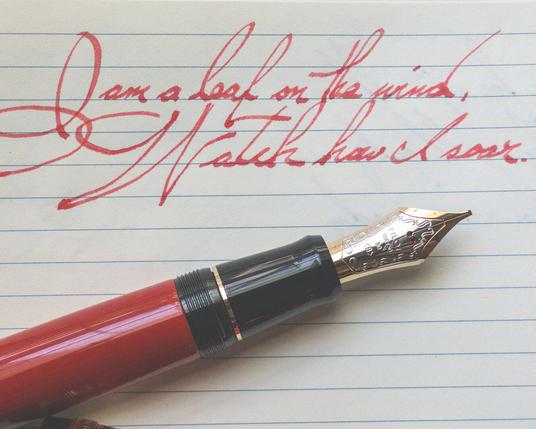 I am a leaf on the wind,
Watch how I soar.